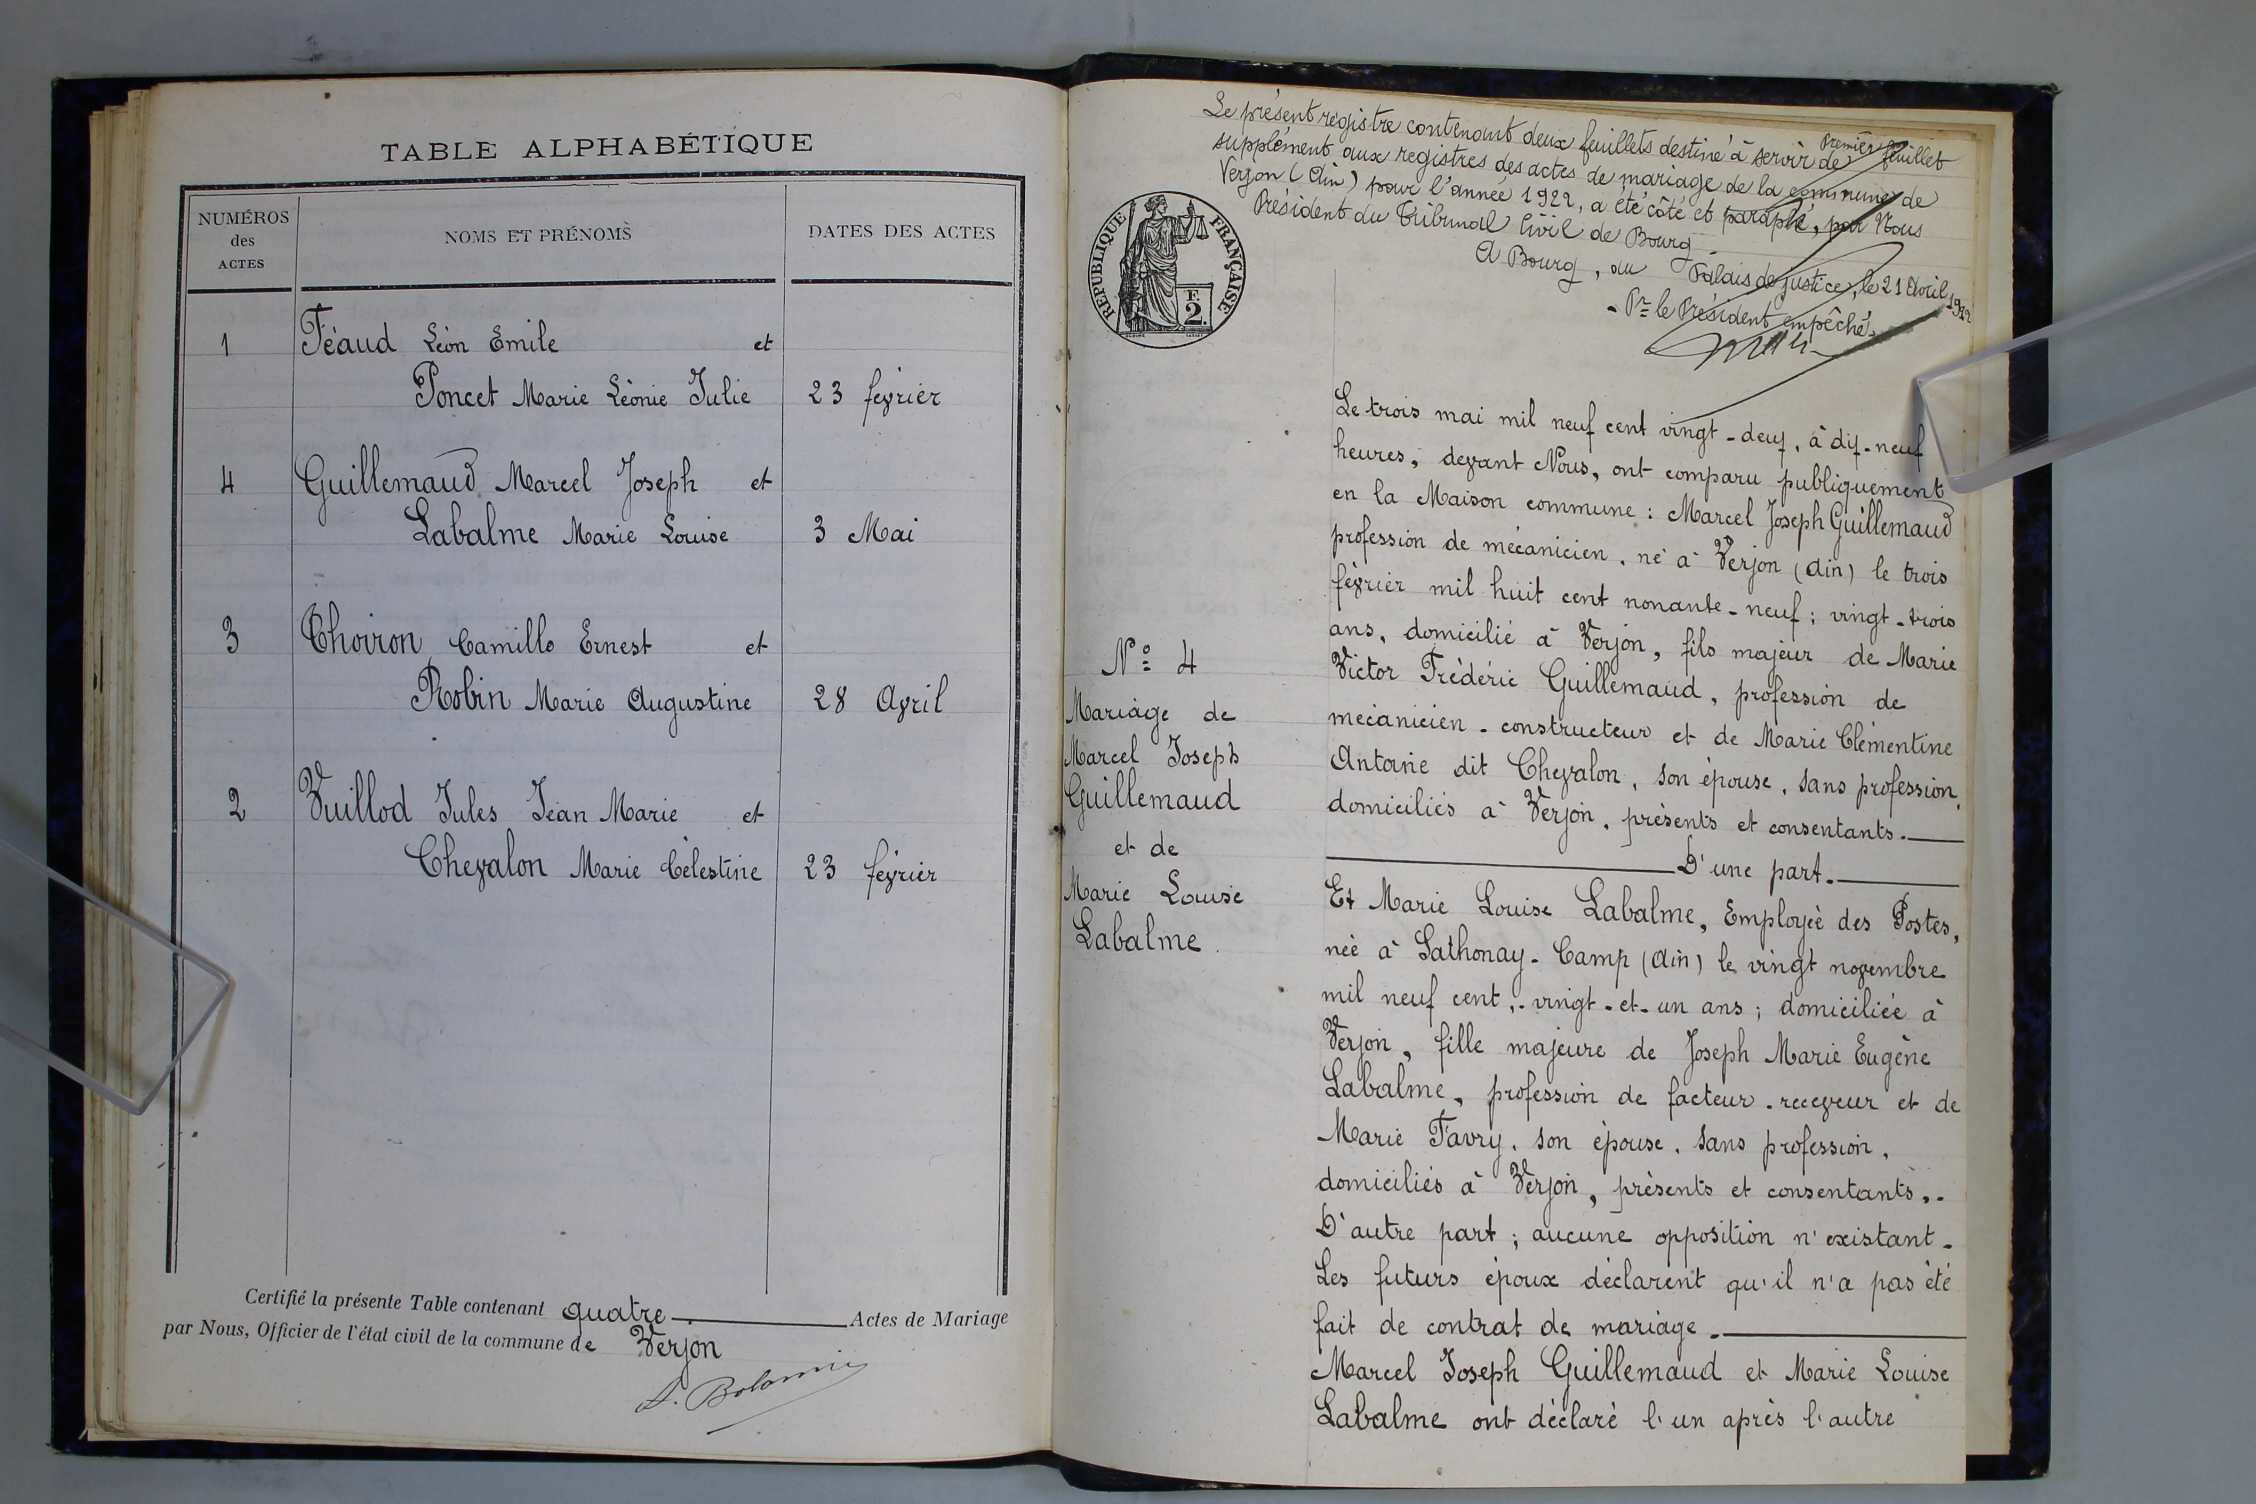 TABLE ALPHABÉTIQUE
NUMÉROS
des
ACTES
NOMS ET PRÉNOMS
DATES DES ACTES
1 Féaud Léon Emile et
Poncet Marie Léonie Julie 23 février
4 Guillemaud Marcel Joseph et
Labalme Marie Louise 3 Mai
3 Thoiron Camille Ernest et
Robin Marie Augustine 28 Avril
2 Vuillod Jules Jean Marie et
Chevalon Marie Célestine 23 février
Certifié la présente Table contenant quatre Actes de Mariage
par Nous, Officier de l'état civil de la commune de Verjon
Premier feuillet
Le présent registre contenant deux feuillets destiné à servir de
supplément aux registres des actes de mariage de la commune de
Verjon (Ain) pour l'année 1922, a été côté et paraphé, par Nous
Président du Tribunal Civil de Bourg
A Bourg, au Palais de justice, le 21 Avril 1922
Pr le Président empêché.
RÉPUBLIQUE FRANÇAISE
F.
2.
Le trois mai mil neuf cent vingt-deux, à dix-neuf
heures, devant Nous, ont comparu publiquement
en la Maison commune : Marcel Joseph Guillemaud
profession de mécanicien, né à Verjon (Ain) le trois
février mil huit cent nonante-neuf ; vingt-trois
ans, domicilié à Verjon, fils majeur de Marie
Victor Frédéric Guillemaud, profession de
mécanicien-constructeur et de Marie Clémentine
Antoine dit Chevalon, son épouse, sans profession,
domiciliés à Verjon, présents et consentants.
D'une part.
Et Marie Louise Labalme, Employée des Postes,
née à Sathonay-Camp (Ain) le vingt novembre
mil neuf cent, vingt-et-un ans ; domiciliée à
Verjon, fille majeure de Joseph Marie Eugène
Labalme, profession de facteur-receveur et de
Marie Favry, son épouse, sans profession,
domiciliés à Verjon, présents et consentants,
D'autre part ; aucune opposition n'existant.
Les futurs époux déclarent qu'il n'a pas été
fait de contrat de mariage.
Marcel Joseph Guillemaud et Marie Louise
Labalme ont déclaré l'un après l'autre
N° 4
Mariage de
Marcel Joseph
Guillemaud
et de
Marie Louise
Labalme